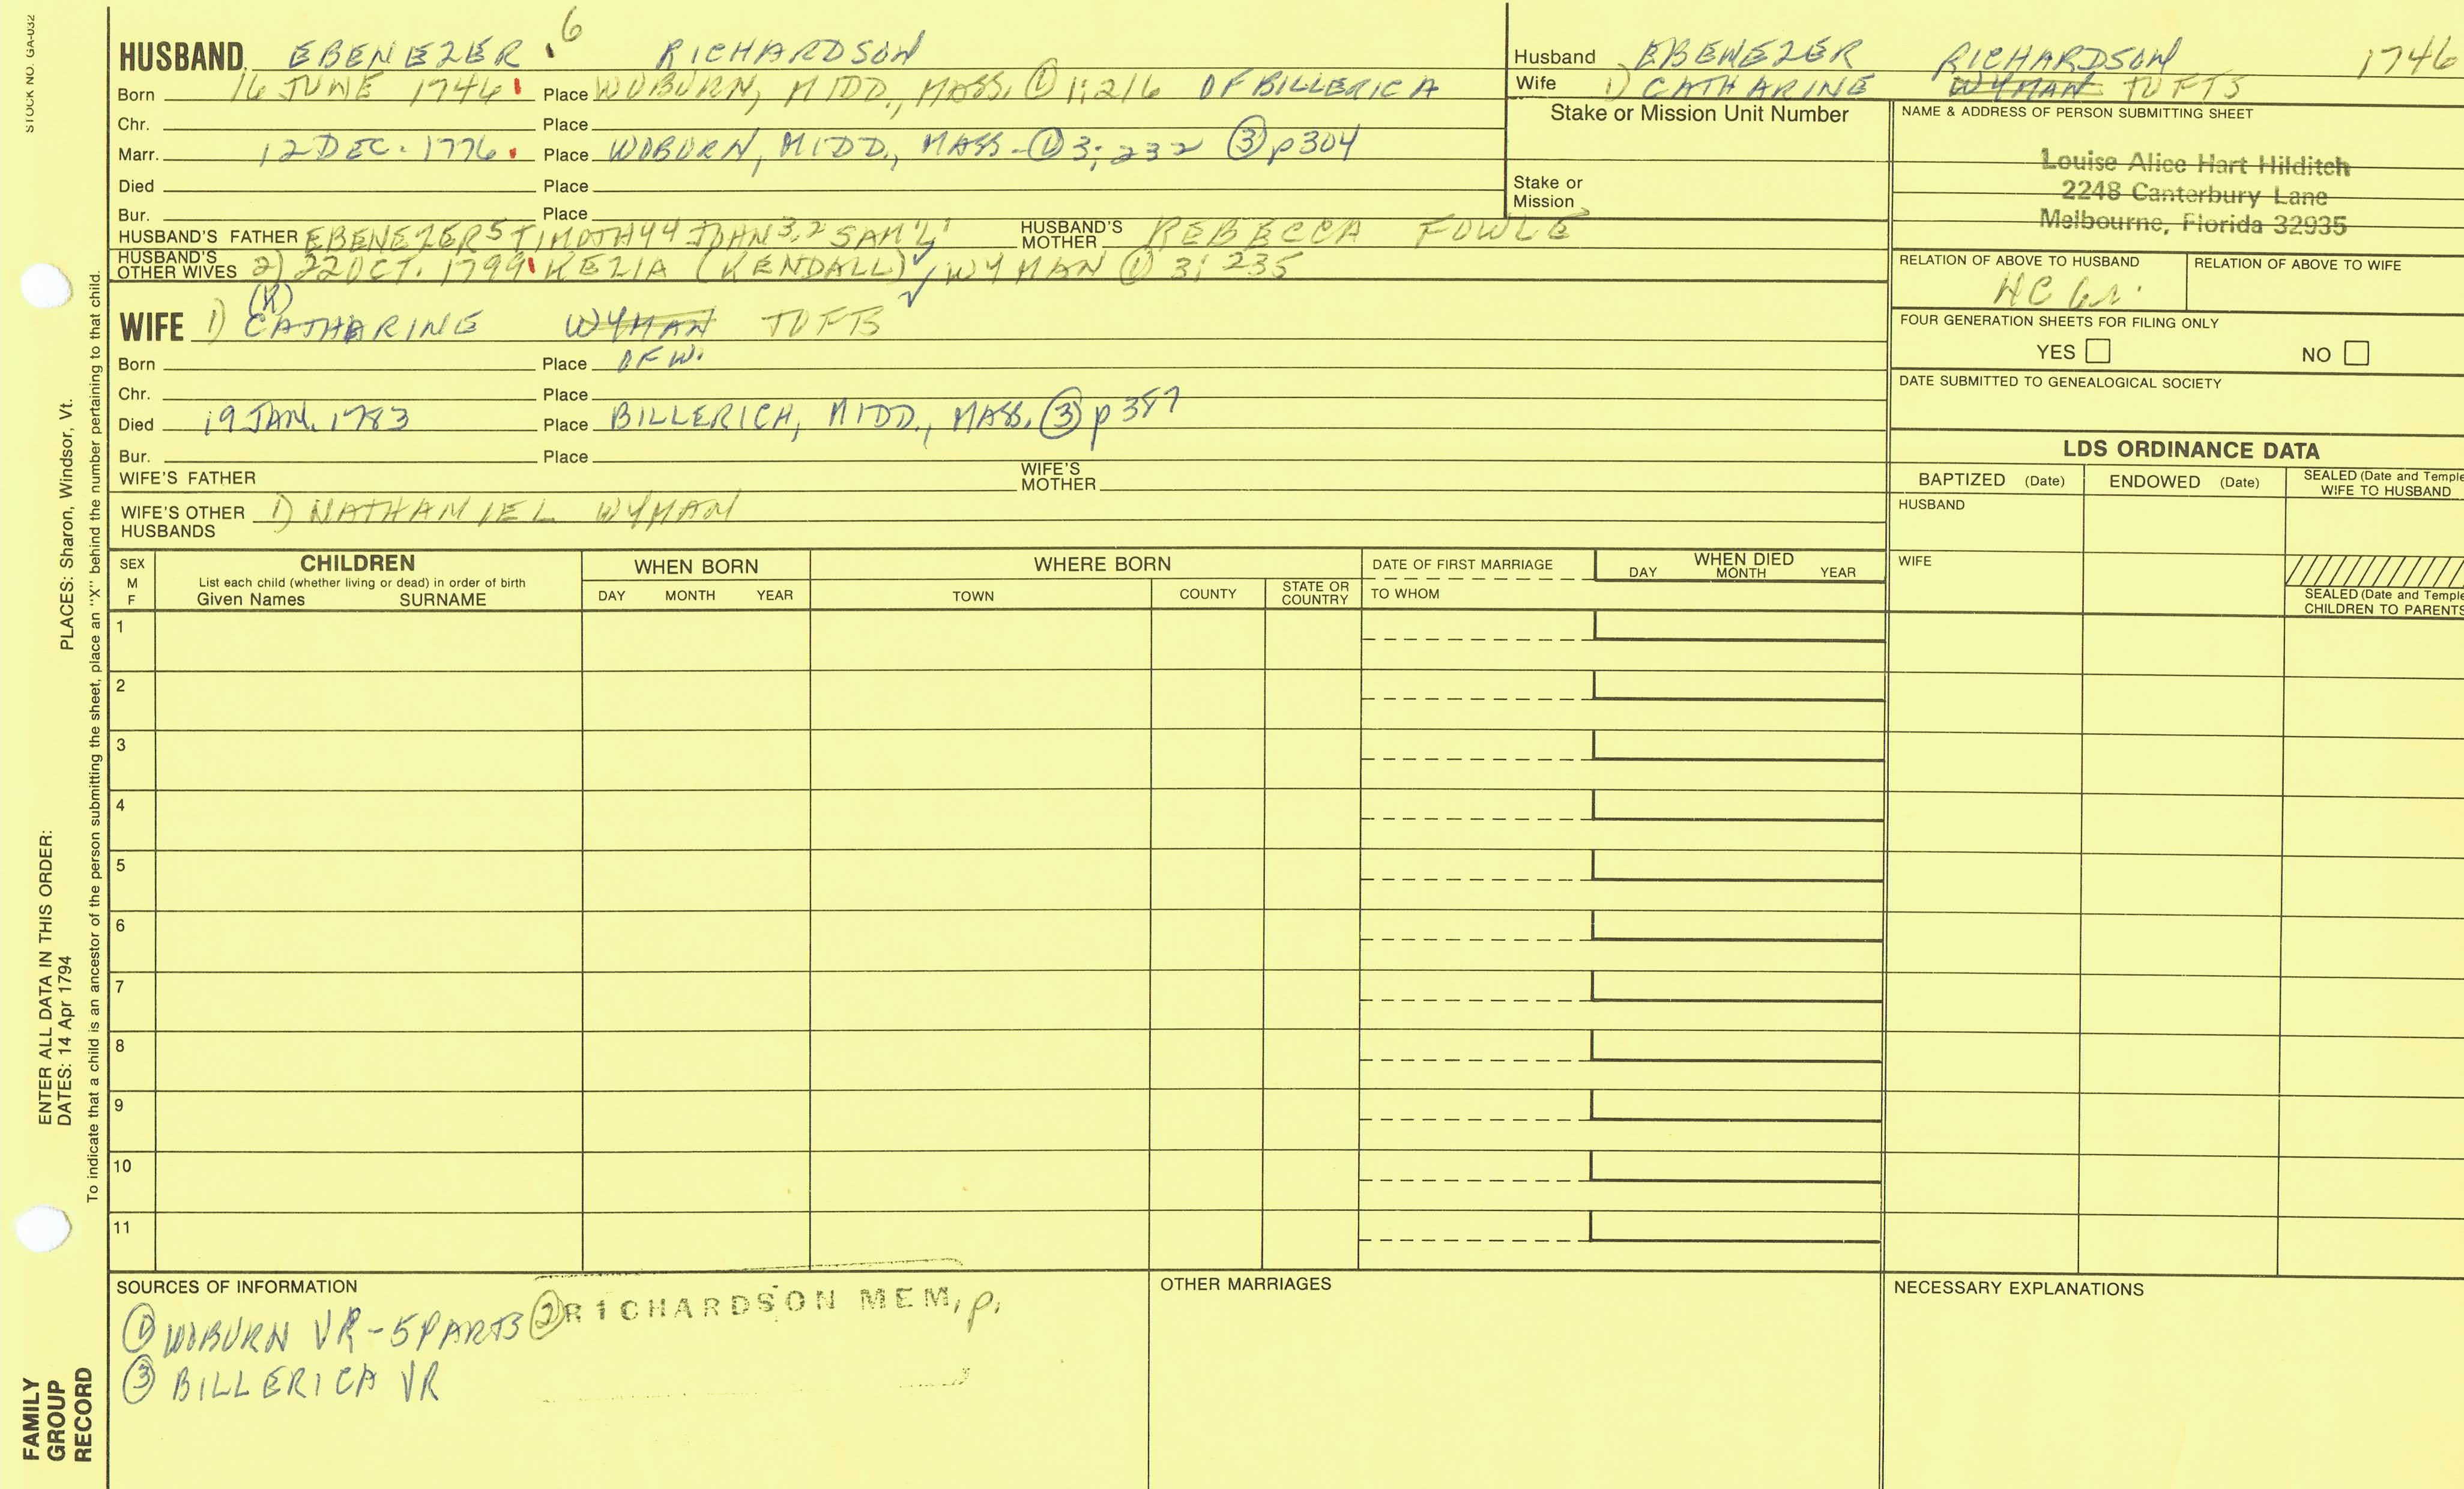 STOCK NO. GA-032
HUSBAND EBENEZER 6 RICHARDSON
Born 16 JUNE 1746 Place WOBURN, MIDD., MASS. ① 1;216 OF BILLERICA
Chr. Place
Marr. 12 DEC. 1776 Place WOBURN, MIDD., MASS. ① 3; 232 ③ p304
Died Place
Bur. Place
HUSBAND'S FATHER EBENEZER 5 TIMOTHY 4 JOHN 3,2 SAM'L 1 HUSBAND'S MOTHER REBECCA FOWLE
HUSBAND'S OTHER WIVES 2) 22 OCT. 1799 KEZIA (KENDALL) ✓ WYMAN ① 3; 235
(K)
WIFE 1) CATHARINE WYMAN TUFTS
Born Place OF W.
Chr. Place
Died 19 JAN. 1783 Place BILLERICH, MIDD., MASS. ③ p 387
Bur. Place
WIFE'S FATHER WIFE'S MOTHER
WIFE'S OTHER HUSBANDS 1) NATHANIEL WYMAN
Husband EBENEZER RICHARDSON 1746
Wife 1) CATHARINE WYMAN TUFTS
Stake or Mission Unit Number
Stake or Mission
NAME & ADDRESS OF PERSON SUBMITTING SHEET
Louise Alice Hart Hilditch
2248 Canterbury Lane
Melbourne, Florida 32935
RELATION OF ABOVE TO HUSBAND RELATION OF ABOVE TO WIFE
FOUR GENERATION SHEETS FOR FILING ONLY
YES NO
DATE SUBMITTED TO GENEALOGICAL SOCIETY
LDS ORDINANCE DATA
BAPTIZED (Date) ENDOWED (Date) SEALED (Date and Temple
WIFE TO HUSBAND
HUSBAND
WIFE
SEALED (Date and Temple
CHILDREN TO PARENTS
SEX M F
CHILDREN
List each child (whether living or dead) in order of birth
Given Names SURNAME
WHEN BORN
DAY MONTH YEAR
WHERE BORN
TOWN COUNTY STATE OR COUNTRY
DATE OF FIRST MARRIAGE
TO WHOM
WHEN DIED
DAY MONTH YEAR
1
2
3
4
5
6
7
8
9
10
11
SOURCES OF INFORMATION
① WOBURN VR - 5 PARTS ② RICHARDSON MEM, p.
③ BILLERICA VR
OTHER MARRIAGES
NECESSARY EXPLANATIONS
ENTER ALL DATA IN THIS ORDER:
DATES: 14 Apr 1794
PLACES: Sharon, Windsor, Vt.
To indicate that a child is an ancestor of the person submitting the sheet, place an "X" behind the number pertaining to that child.
FAMILY
GROUP
RECORD